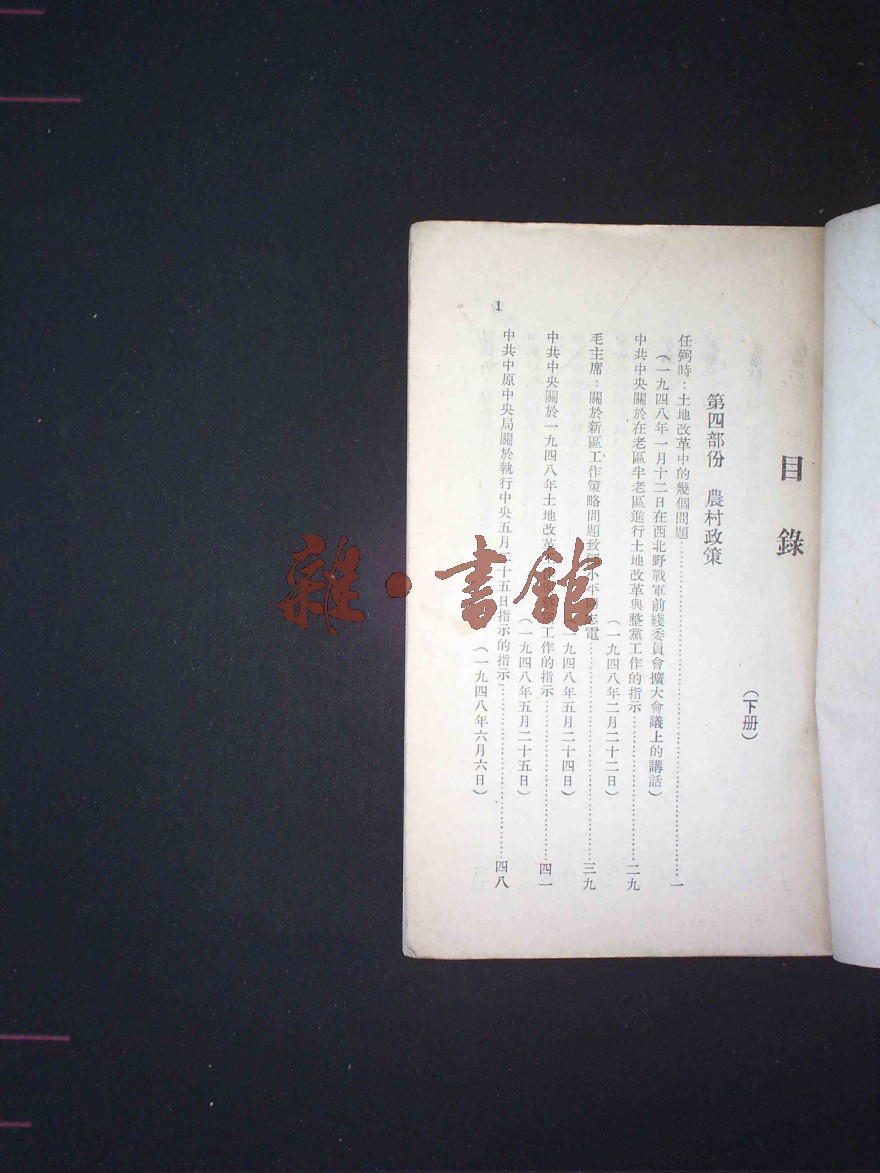 目錄
(下册)
第四部份 農村政策
任弼時：土地改革中的幾個問題……一
(一九四八年一月十二日在西北野戰軍前綫委員會擴大會議上的講話)
中共中央關於在老區半老區進行土地改革與整黨工作的指示……二九
(一九四八年二月二十二日)
毛主席：關於新區工作策略問題致 小平同志電……三九
一九四八年五月二十四日)
中共中央關於一九四八年土地改革 工作的指示……四一
(一九四八年五月二十五日)
中共中原中央局關於執行中央五月二十五日指示的指示……四八
(一九四八年六月六日)
1
雜·書館